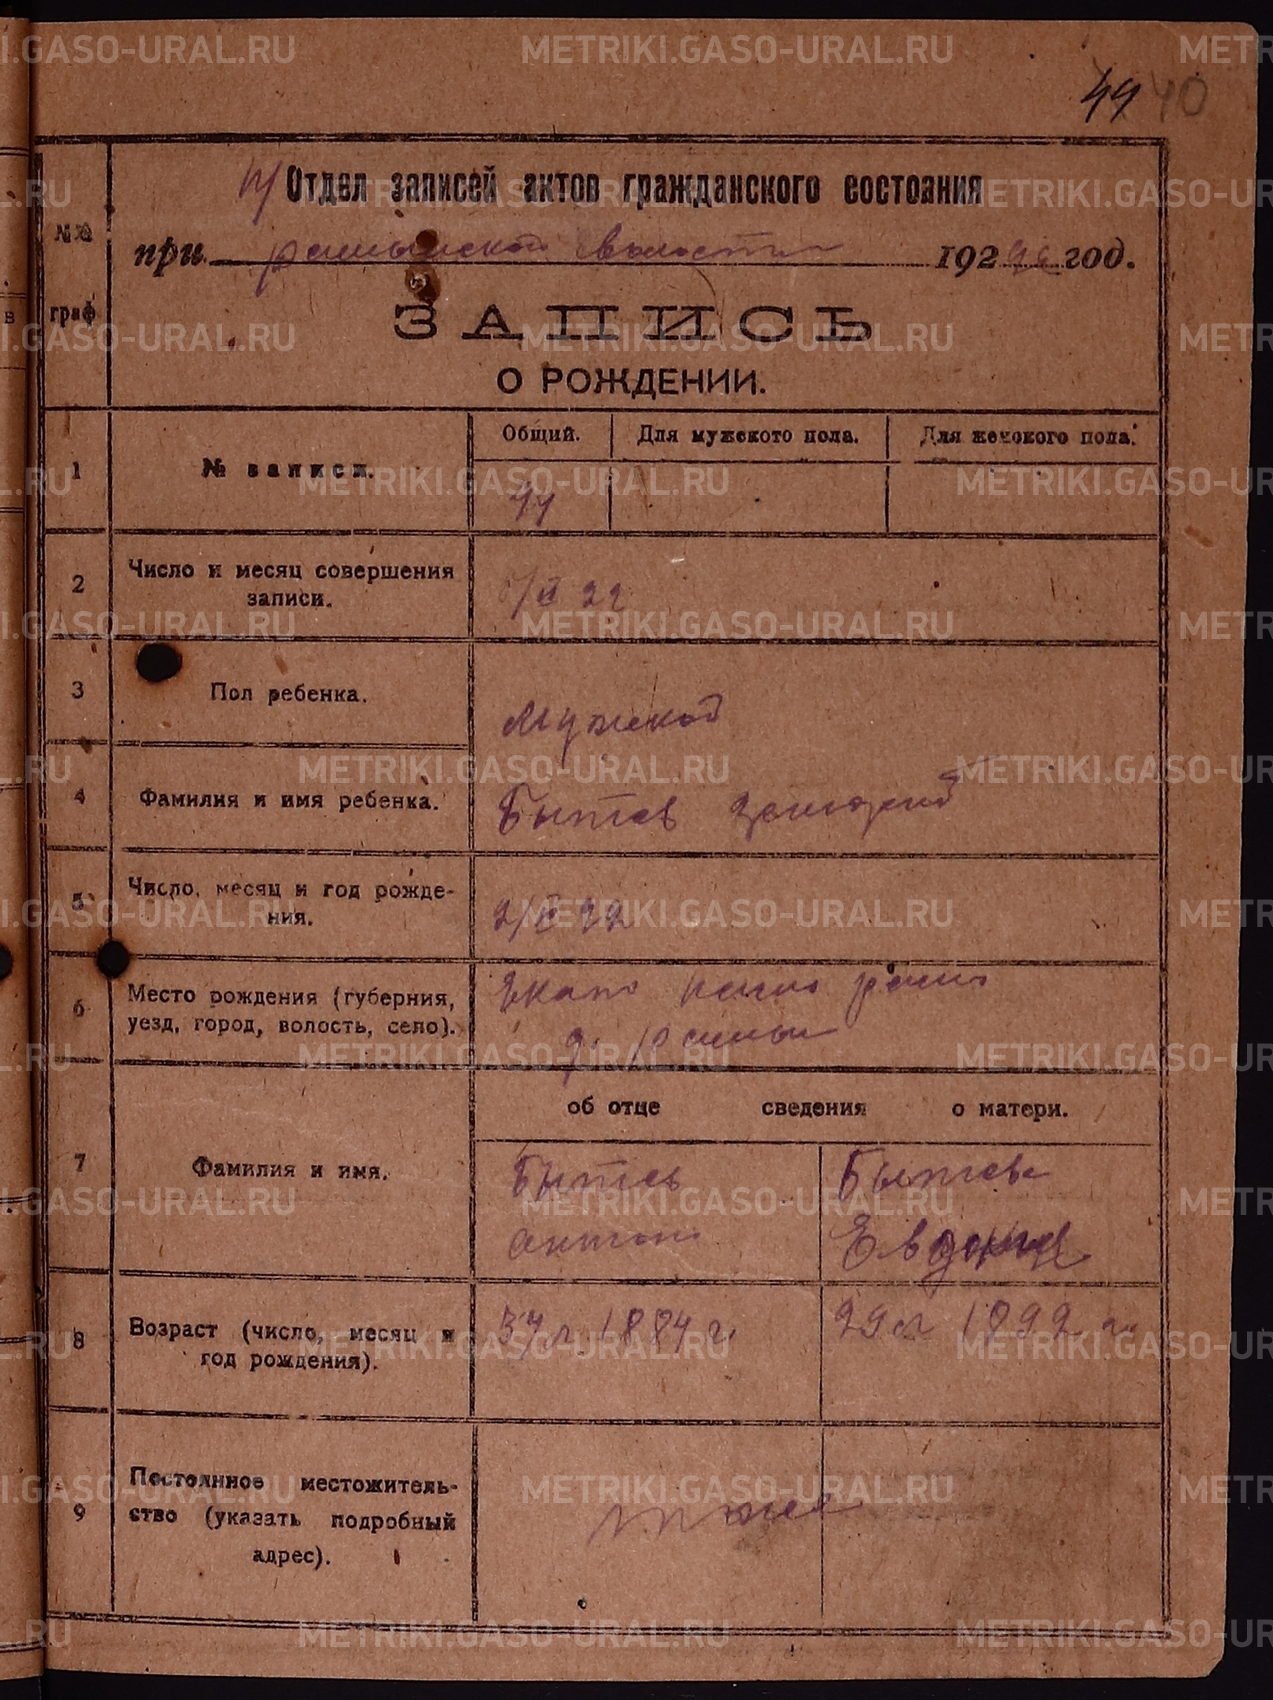 METRIKI.GASO-URAL.RU
49 40
Отдел записей актов гражданского состояния
№№ граф
при волости 192 год.
ЗАПИСЬ
О РОЖДЕНИИ.
1 № записи. Общий. Для мужского пола. Для женского пола.
44
2 Число и месяц совершения
записи.
22
3 Пол ребенка.
Мужской
4 Фамилия и имя ребенка.
Бытев
5 Число, месяц и год рожде-
ния.
2/II 22
6 Место рождения (губерния,
уезд, город, волость, село).
Екат
д.
об отце сведения о матери.
7 Фамилия и имя.
Бытев Бытева
Антон Евдокия
8 Возраст (число, месяц и
год рождения).
37 л. 1884 г. 29 л 1892 г.
9 Постоянное местожитель-
ство (указать подробный
адрес).